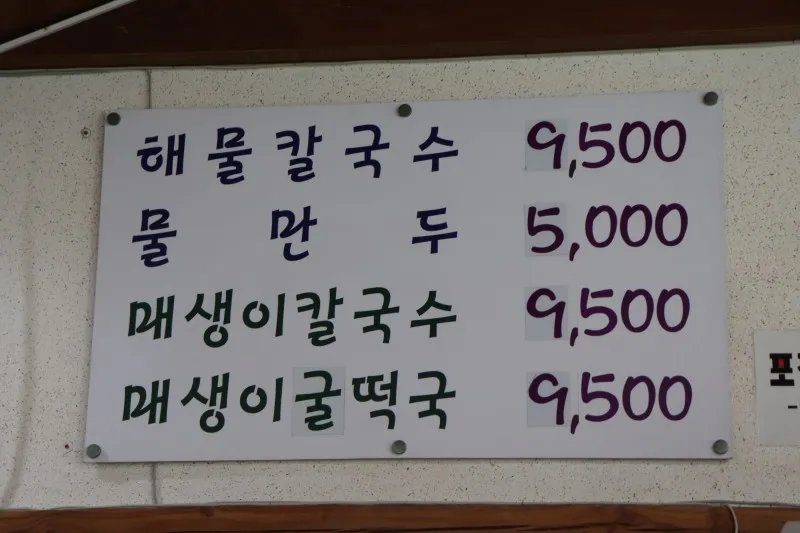 해물칼국수 9,500
물만두 5,000
매생이칼국수 9,500
매생이굴떡국 9,500